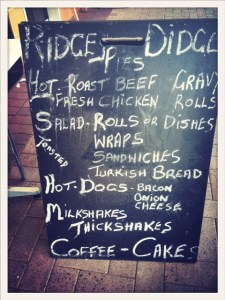 RIDGE - DIDGE
PIES
HOT - ROAST BEEF GRAVY
FRESH CHICKEN ROLLS
SALAD - ROLLS OR DISHES
WRAPS
TOASTED SANDWICHES
TURKISH BREAD
HOT - DOGS - BACON
ONION
CHEESE
MILKSHAKES
THICKSHAKES
COFFEE - CAKES